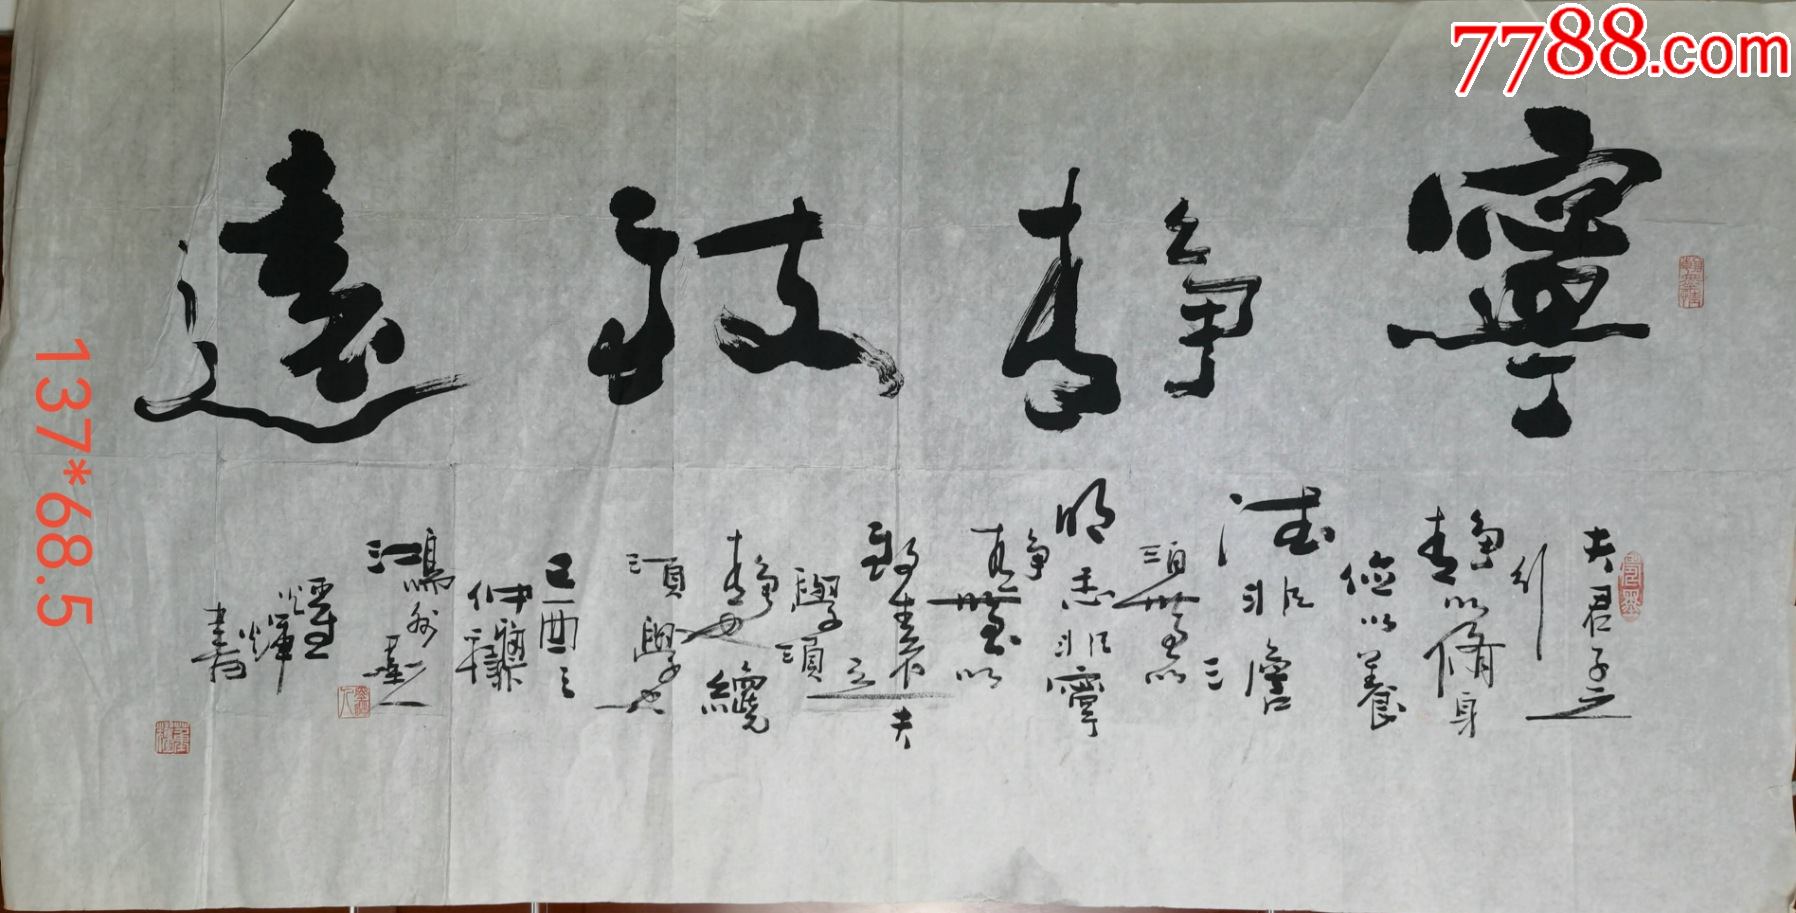 寧靜致遠
夫君子之
行
靜以脩身
儉以養
德非澹
泊無以
明志非寧
靜無以
致遠夫
學須
靜也纔
須學也
酉之
仲
鴻
輝
書
7788.com
137*68.5